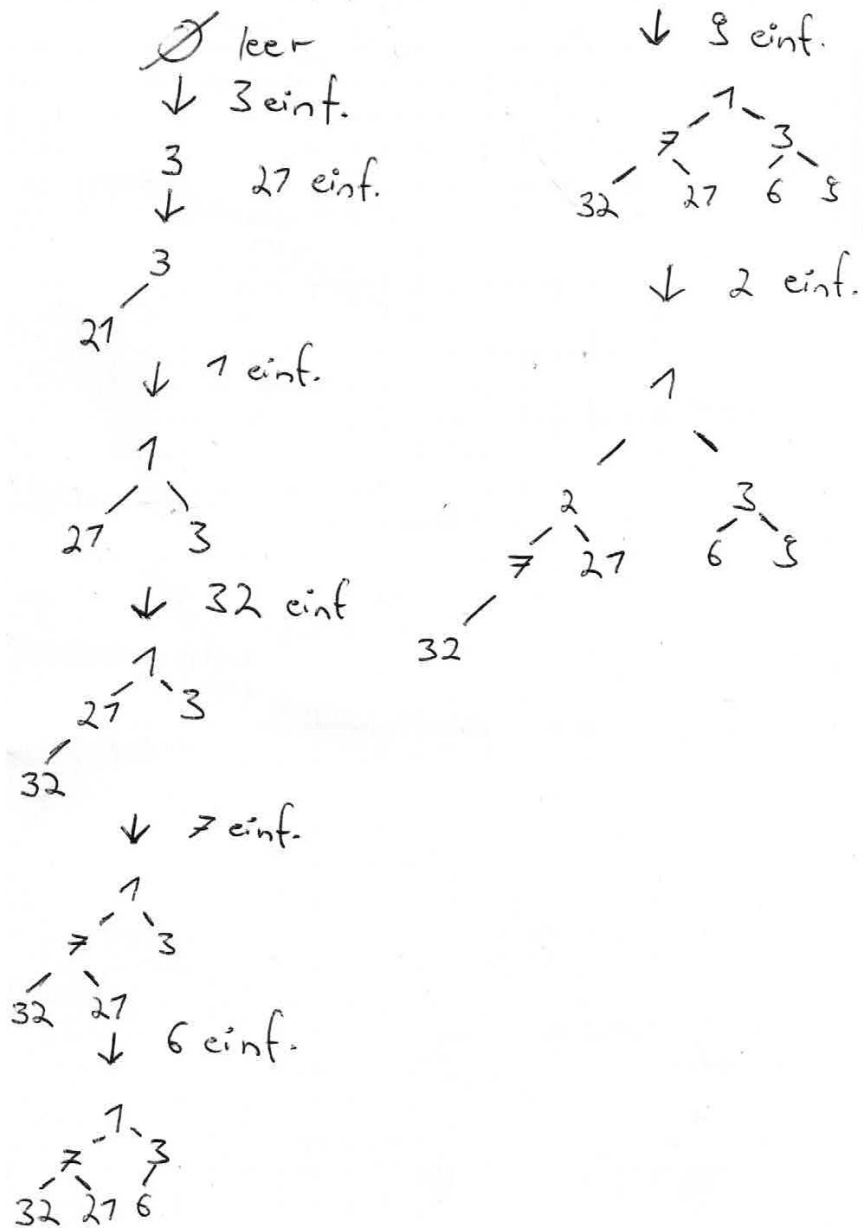 ∅ leer
↓ 3 einf.
3
↓ 27 einf.
3
27
↓ 1 einf.
1
27 3
↓ 32 einf
1
27 3
32
↓ 7 einf.
1
7 3
32 27
↓ 6 einf.
1
7 3
32 27 6
↓ 9 einf.
1
7 3
32 27 6 9
↓ 2 einf.
1
2 3
7 27 6 9
32